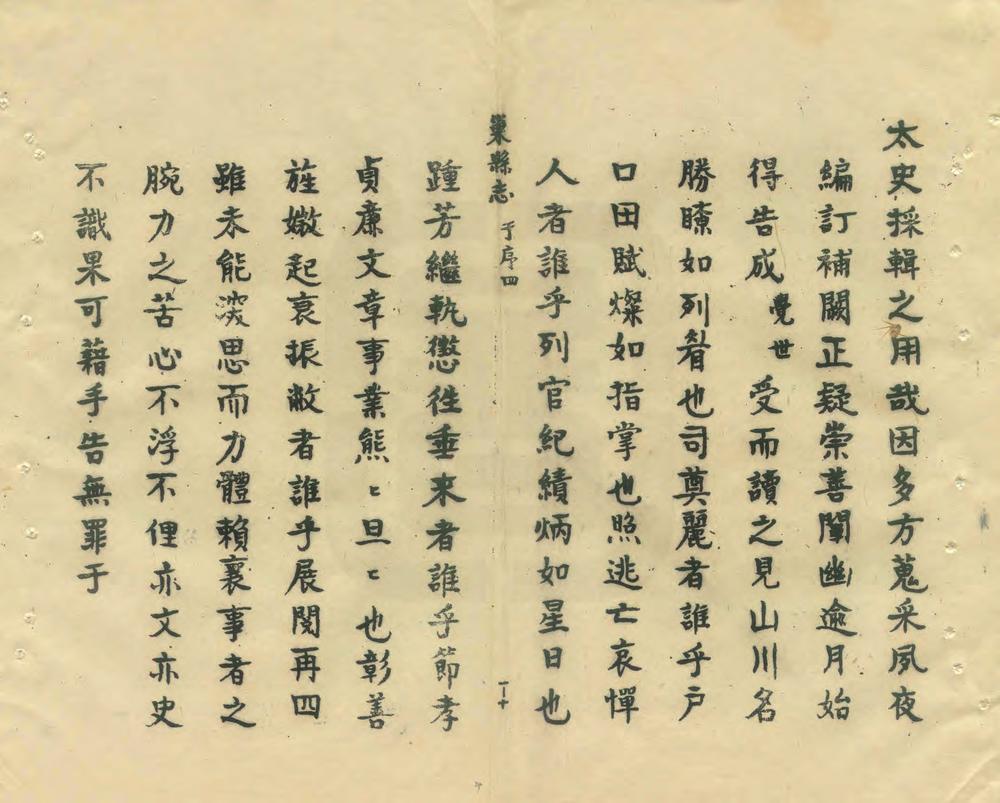 太史採輯之用哉因多方蒐采夙夜
編訂補闕正疑崇善闡幽逾月始
得告成覺世受而讀之見山川名
勝瞭如列眉也司奠麗者誰乎戶
口田賦燦如指掌也照逃亡哀憚
人者誰乎列官紀績炳如星日也
巢縣志 于序四
踵芳繼軌懲徃垂来者誰乎節孝
貞廉文章事業熊〻旦〻也彰善
旌媺起衰振敝者誰乎展閱再四
雖未能浚思而力體賴襄事者之
腕力之苦心不浮不俚亦文亦史
不識果可藉手告無罪于